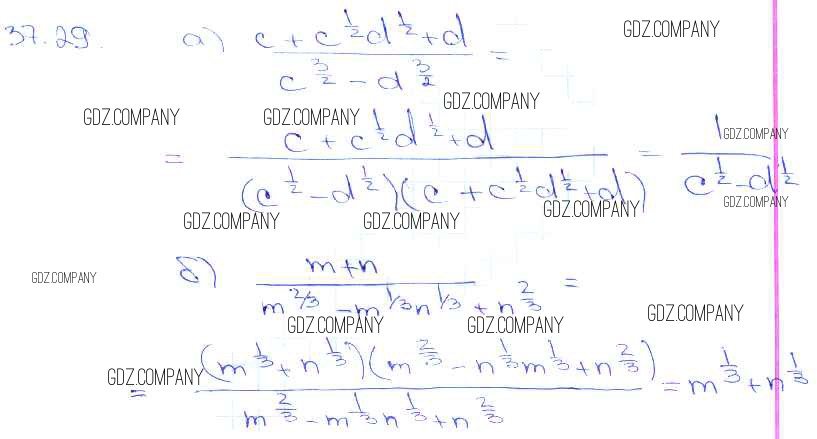 37.29. а) (c + c^{1/2}d^{1/2} + d) / (c^{3/2} − d^{3/2}) =
= (c + c^{1/2}d^{1/2} + d) / ((c^{1/2} − d^{1/2})(c + c^{1/2}d^{1/2} + d)) = 1 / (c^{1/2} − d^{1/2})
б) (m + n) / (m^{2/3} − m^{1/3}n^{1/3} + n^{2/3}) =
= ((m^{1/3} + n^{1/3})(m^{2/3} − n^{1/3}m^{1/3} + n^{2/3})) / (m^{2/3} − m^{1/3}n^{1/3} + n^{2/3}) = m^{1/3} + n^{1/3}
GDZ.COMPANY
GDZ.COMPANY
GDZ.COMPANY
GDZ.COMPANY
GDZ.COMPANY
GDZ.COMPANY
GDZ.COMPANY
GDZ.COMPANY
GDZ.COMPANY
GDZ.COMPANY
GDZ.COMPANY
GDZ.COMPANY
GDZ.COMPANY
GDZ.COMPANY